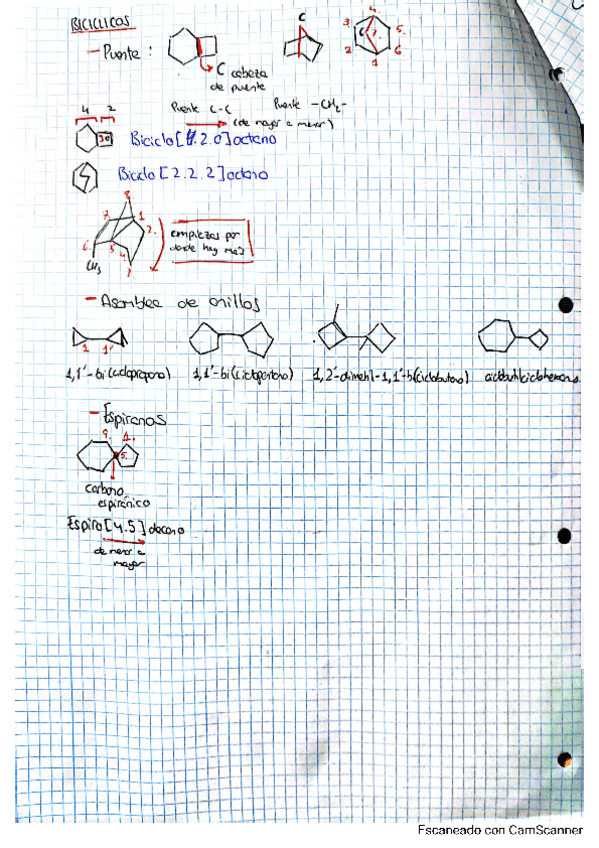 BICICLICOS
- Puente :
C cabeza
de puente
C
4. 3. C 7. 5. 2 6 1
Puente C-C
Puente -CH2-
(de mayor a menor)
4 2
Biciclo[4.2.0]octano
Biciclo[2.2.2]octano
8. 7. 1 2. 6. 5 4
CH3
empiezas por
donde hay más
- Asamblea de anillos
1 1'
1,1'-bi(ciclopropano) 1,1'-bi(ciclopentano) 1,2'-dimetil-1,1'-bi(ciclobutano) ciclobutilciclohexano
- Espiranos
9. 1. 5.
carbono
espiránico
Espiro[4.5]decano
de menor a
mayor
Escaneado con CamScanner